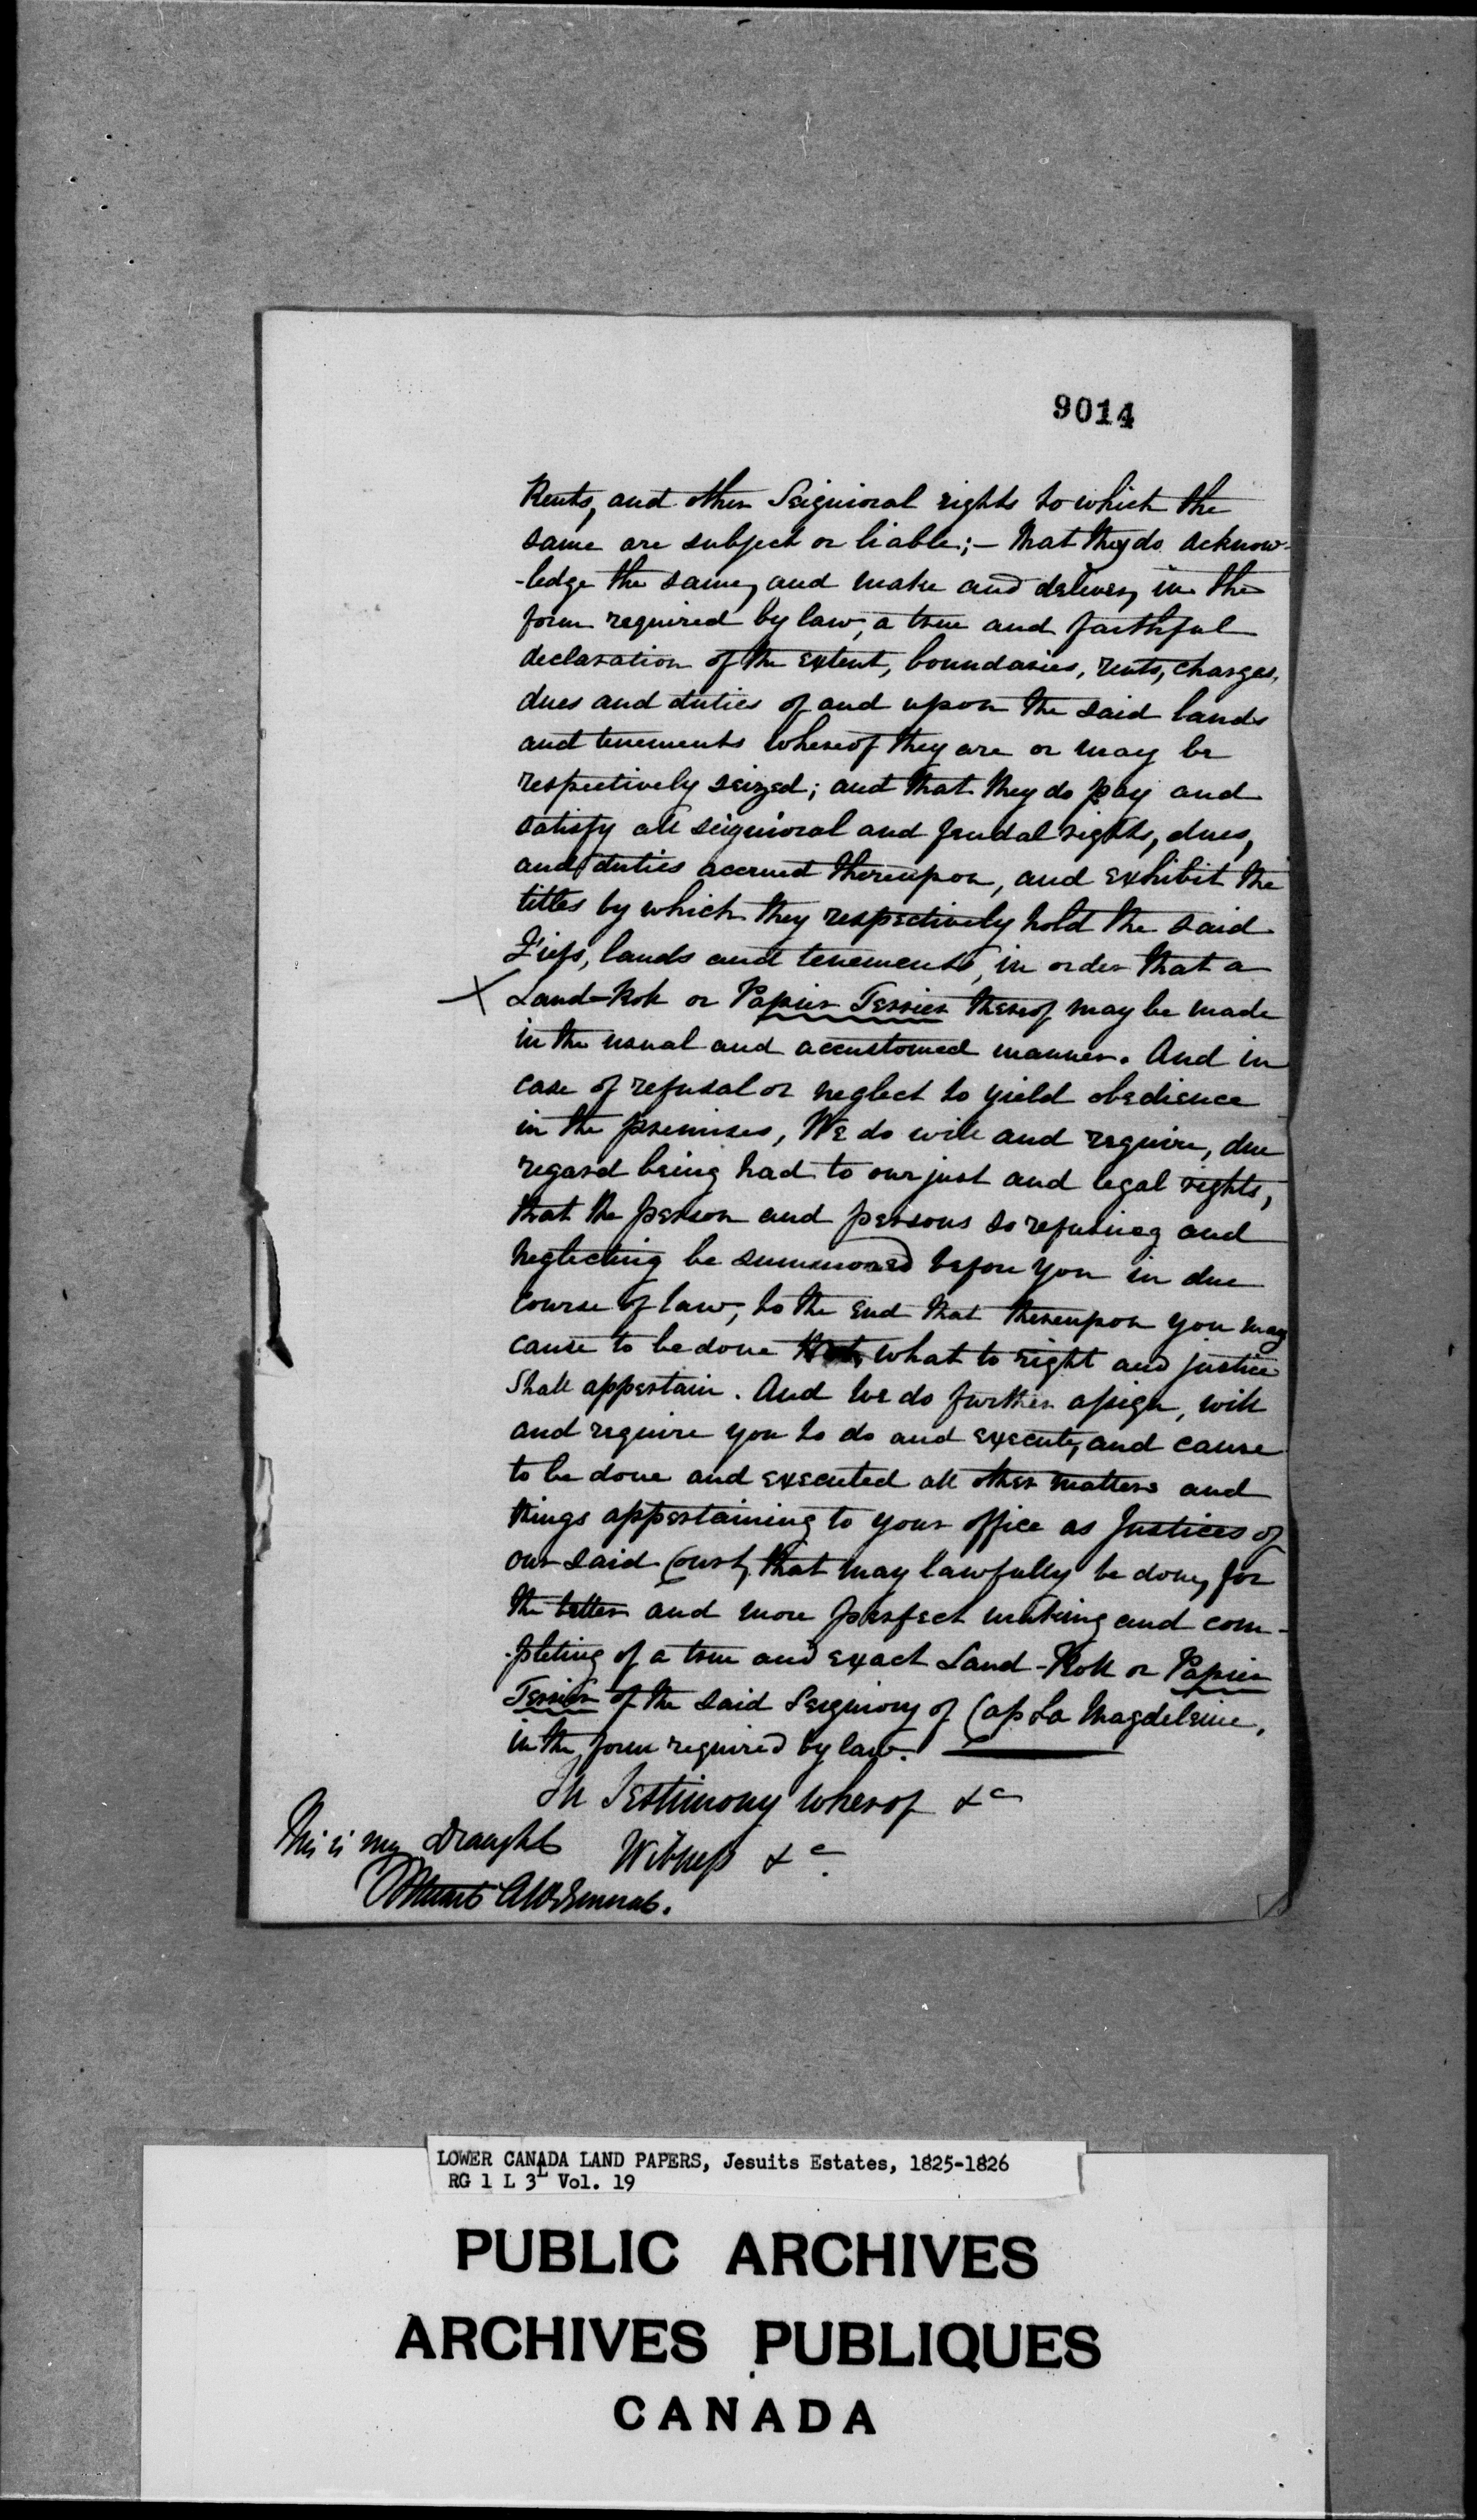 9014
Rents, and other Seignioral rights to which the
same are subject or liable; – that they do acknow-
-ledge the same, and make and deliver, in the
form required by law, a true and faithful
declaration of the extent, boundaries, rents, charges,
dues and duties of and upon the said lands
and tenements whereof they are or may be
respectively seized; and that they do pay and
satisfy all seignioral and feudal rights, dues,
and duties accrued thereupon, and exhibit the
titles by which they respectively hold the said
Fiefs, lands and tenements, in order that a
X Land-Roll or Papier Terrier thereof may be made
in the usual and accustomed manner. And in
case of refusal or neglect to yield obedience
in the premises, We do will and require, due
regard being had to our just and legal rights,
that the person and persons so refusing and
neglecting be summoned before you in due
course of law, to the end that thereupon you may
cause to be done what to right and justice
shall appertain. And we do further assign, will
and require you to do and execute, and cause
to be done and executed all other matters and
things appertaining to your office as Justices of
our said Court, that may lawfully be done, for
the better and more perfect making and com-
-pleting of a true and exact Land-Roll or Papier
Terrier of the said Seigniory of Cap La Magdeleine,
in the form required by law.
In Testimony whereof &c
This is my Draught Witness &c.
Stuart Att. General.
LOWER CANADA LAND PAPERS, Jesuits Estates, 1825-1826
RG 1 L 3L Vol. 19
PUBLIC ARCHIVES
ARCHIVES PUBLIQUES
CANADA